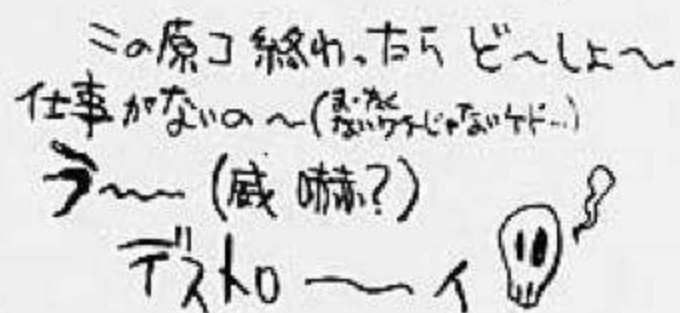 この原コ終わったら ど〜しよ〜
仕事がないの〜(まったくないワケじゃないケド…)
う〜〜(威嚇?)
デストロ〜〜イ